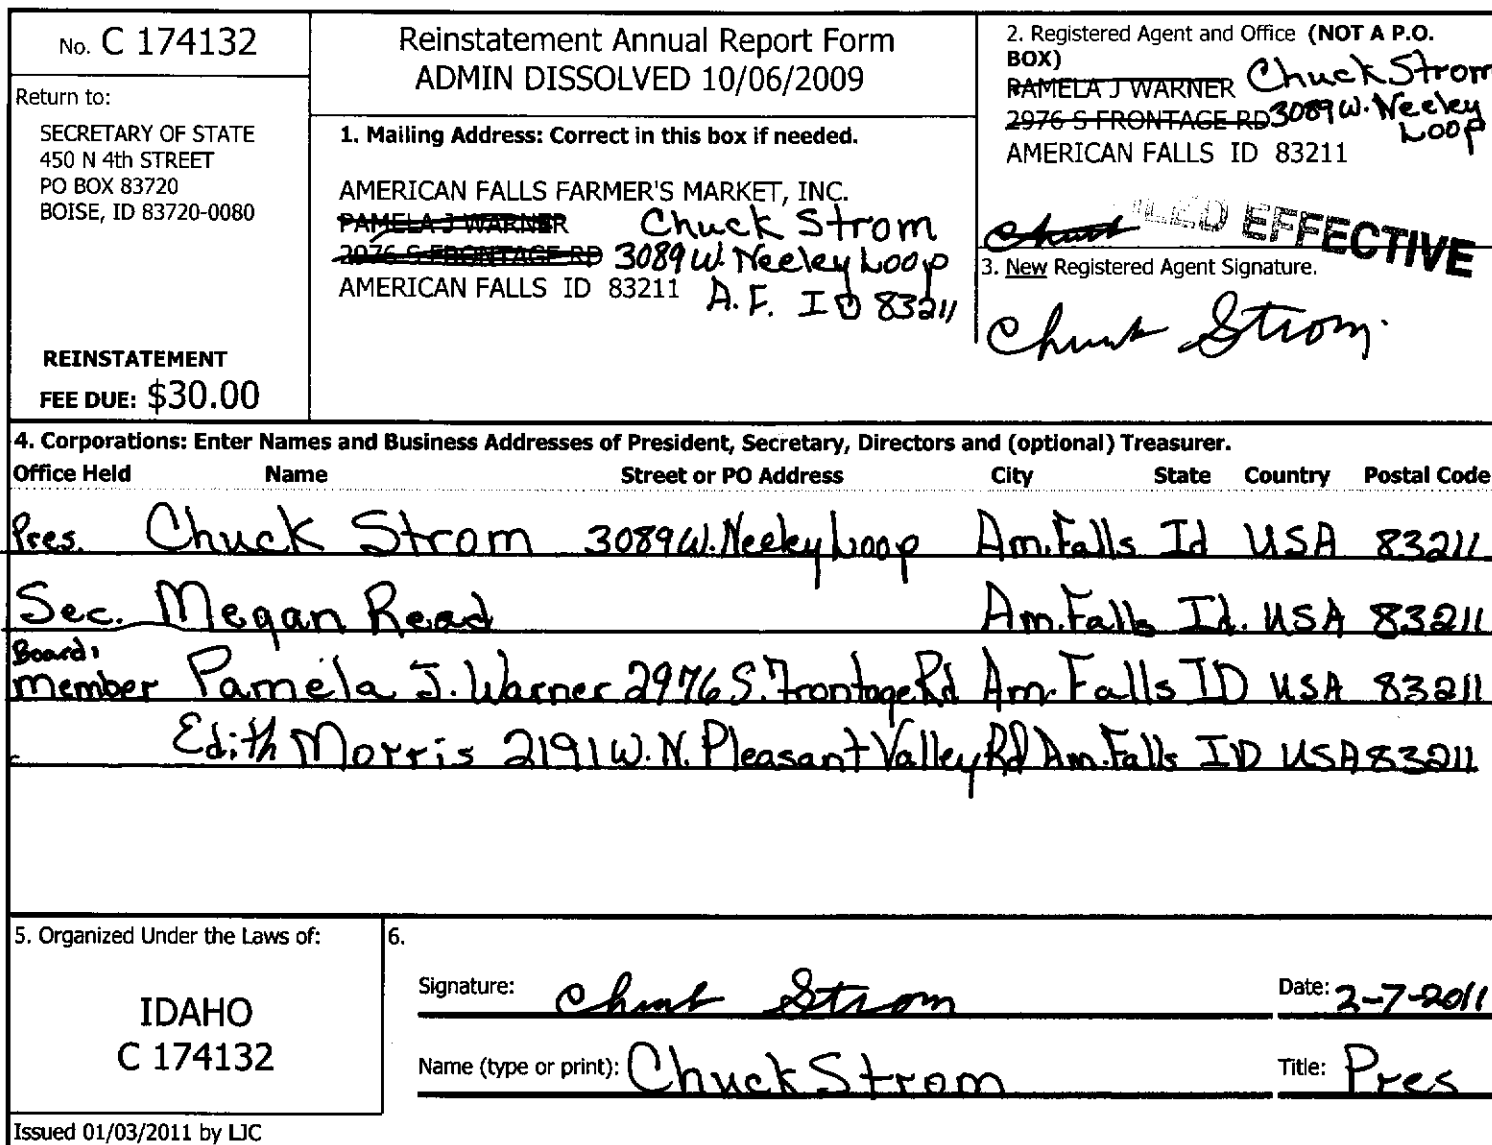 No. C 174132
Return to:
SECRETARY OF STATE
450 N 4th STREET
PO BOX 83720
BOISE, ID 83720-0080
REINSTATEMENT
FEE DUE: $30.00
Reinstatement Annual Report Form
ADMIN DISSOLVED 10/06/2009
1. Mailing Address: Correct in this box if needed.
AMERICAN FALLS FARMER'S MARKET, INC.
PAMELA J WARNER Chuck Strom
2976 S FRONTAGE RD 3089 W. Neeley Loop
AMERICAN FALLS ID 83211 A.F. ID 83211
2. Registered Agent and Office (NOT A P.O.
BOX)
PAMELA J WARNER Chuck Strom
2976 S FRONTAGE RD 3089 W. Neeley
Loop
AMERICAN FALLS ID 83211
FILED EFFECTIVE
Chuck
3. New Registered Agent Signature.
Chuck Strom
4. Corporations: Enter Names and Business Addresses of President, Secretary, Directors and (optional) Treasurer.
Office Held Name Street or PO Address City State Country Postal Code
Pres. Chuck Strom 3089 W. Neeley Loop Am. Falls Id USA 83211
Sec. Megan Read Am. Falls Id. USA 83211
Board
member Pamela J. Warner 2976 S. Frontage Rd Am. Falls ID USA 83211
Edith Morris 2191 W. N. Pleasant Valley Rd Am. Falls ID USA 83211
5. Organized Under the Laws of:
IDAHO
C 174132
6.
Signature: Chuck Strom Date: 2-7-2011
Name (type or print): Chuck Strom Title: Pres
Issued 01/03/2011 by LJC